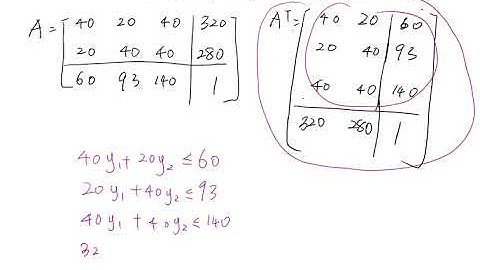 A = [ 40 20 40 | 320
20 40 40 | 280
60 93 140 | 1 ]
Aᵀ = [ 40 20 | 60
20 40 | 93
40 40 | 140
320 280 | 1 ]
40y₁ + 20y₂ ≤ 60
20y₁ + 40y₂ ≤ 93
40y₁ + 40y₂ ≤ 140
32